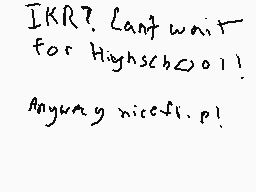 IKR? Can't wait
for Highschool!
Anyway nice fl.p!